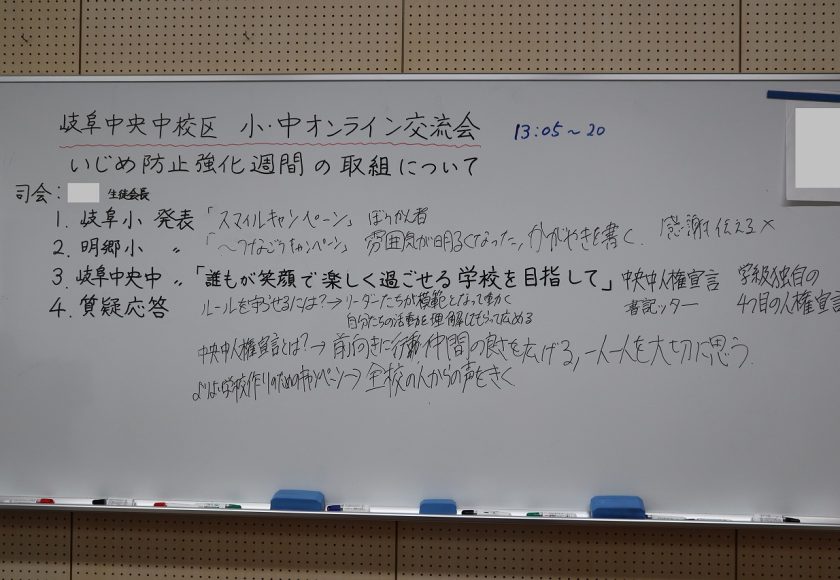 岐阜中央中校区 小・中オンライン交流会 13:05〜20
いじめ防止強化週間の取組について
司会: 生徒会長
1. 岐阜小 発表「スマイルキャンペーン」ぼうかん者
2. 明郷小 〃 「〜つなごうキャンペーン」雰囲気が明るくなった, かがやきを書く. 感謝 伝える×
3. 岐阜中央中 〃「誰もが笑顔で楽しく過ごせる学校を目指して」中央中人権宣言 学級独自の
4. 質疑応答 ルールを守らせるには?→リーダーたちが模範となって動く 書記ッター 4つ目の人権宣言
自分たちの活動を理解してもらって広める
中央中人権宣言とは?→前向きに行動 仲間の良さを広げる, 一人一人を大切に思う.
よりよい学校作りのための →全校の人からの声をきく